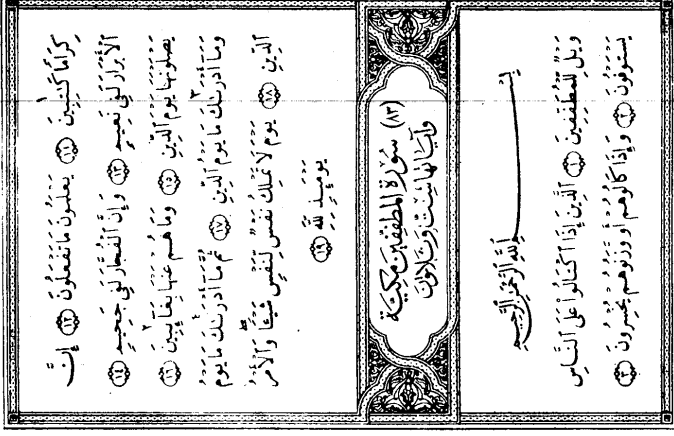 كِرَامًا كَٰتِبِينَ ١١ يَعْلَمُونَ مَا تَفْعَلُونَ ١٢ إِنَّ
ٱلْأَبْرَارَ لَفِى نَعِيمٍ ١٣ وَإِنَّ ٱلْفُجَّارَ لَفِى جَحِيمٍ ١٤
يَصْلَوْنَهَا يَوْمَ ٱلدِّينِ ١٥ وَمَا هُمْ عَنْهَا بِغَآئِبِينَ ١٦
وَمَآ أَدْرَىٰكَ مَا يَوْمُ ٱلدِّينِ ١٧ ثُمَّ مَآ أَدْرَىٰكَ مَا يَوْمُ
ٱلدِّينِ ١٨ يَوْمَ لَا تَمْلِكُ نَفْسٌ لِّنَفْسٍ شَيْـًٔا وَٱلْأَمْرُ
يَوْمَئِذٍ لِّلَّهِ ١٩
(٨٣) سورة المطففين مكية
وآياتها ست وثلاثون
بِسْمِ ٱللَّهِ ٱلرَّحْمَٰنِ ٱلرَّحِيمِ
وَيْلٌ لِّلْمُطَفِّفِينَ ١ ٱلَّذِينَ إِذَا ٱكْتَالُوا۟ عَلَى ٱلنَّاسِ
يَسْتَوْفُونَ ٢ وَإِذَا كَالُوهُمْ أَو وَّزَنُوهُمْ يُخْسِرُونَ ٣